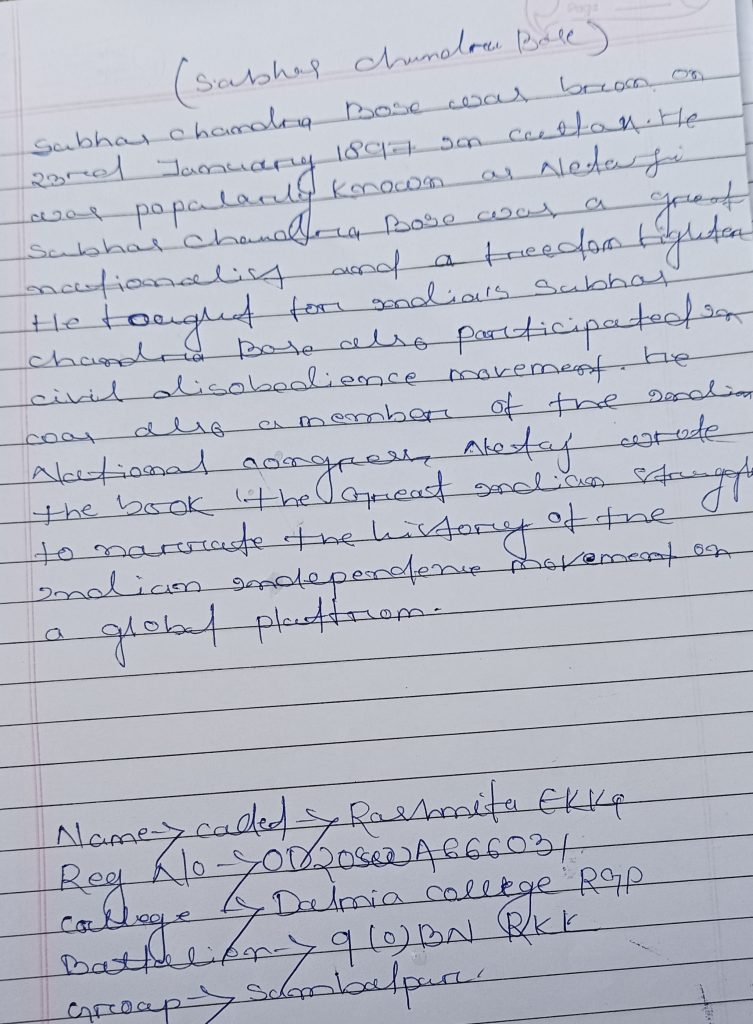 (Subhas Chandra Bose)
Subhas Chandra Bose was bron on
23rd January 1897 in cuttak. He
was popularly known as Netaji
Subhas Chandra Bose was a great
nationalist and a freedom fighter
He fought for india's Subhas
Chandra Bose also participated in
civil disobedience movement. He
was also a member of the indian
National congress, Netaj wrote
the book 'the Great indian struggle
to narrate the history of the
indian independence movement on
a global platfrom.
Name→ caded → Rashmita EKKa
Reg No →
college → Dalmia college RGP
Battelion → 9 (O) BN RKL
Group → Sambalpur